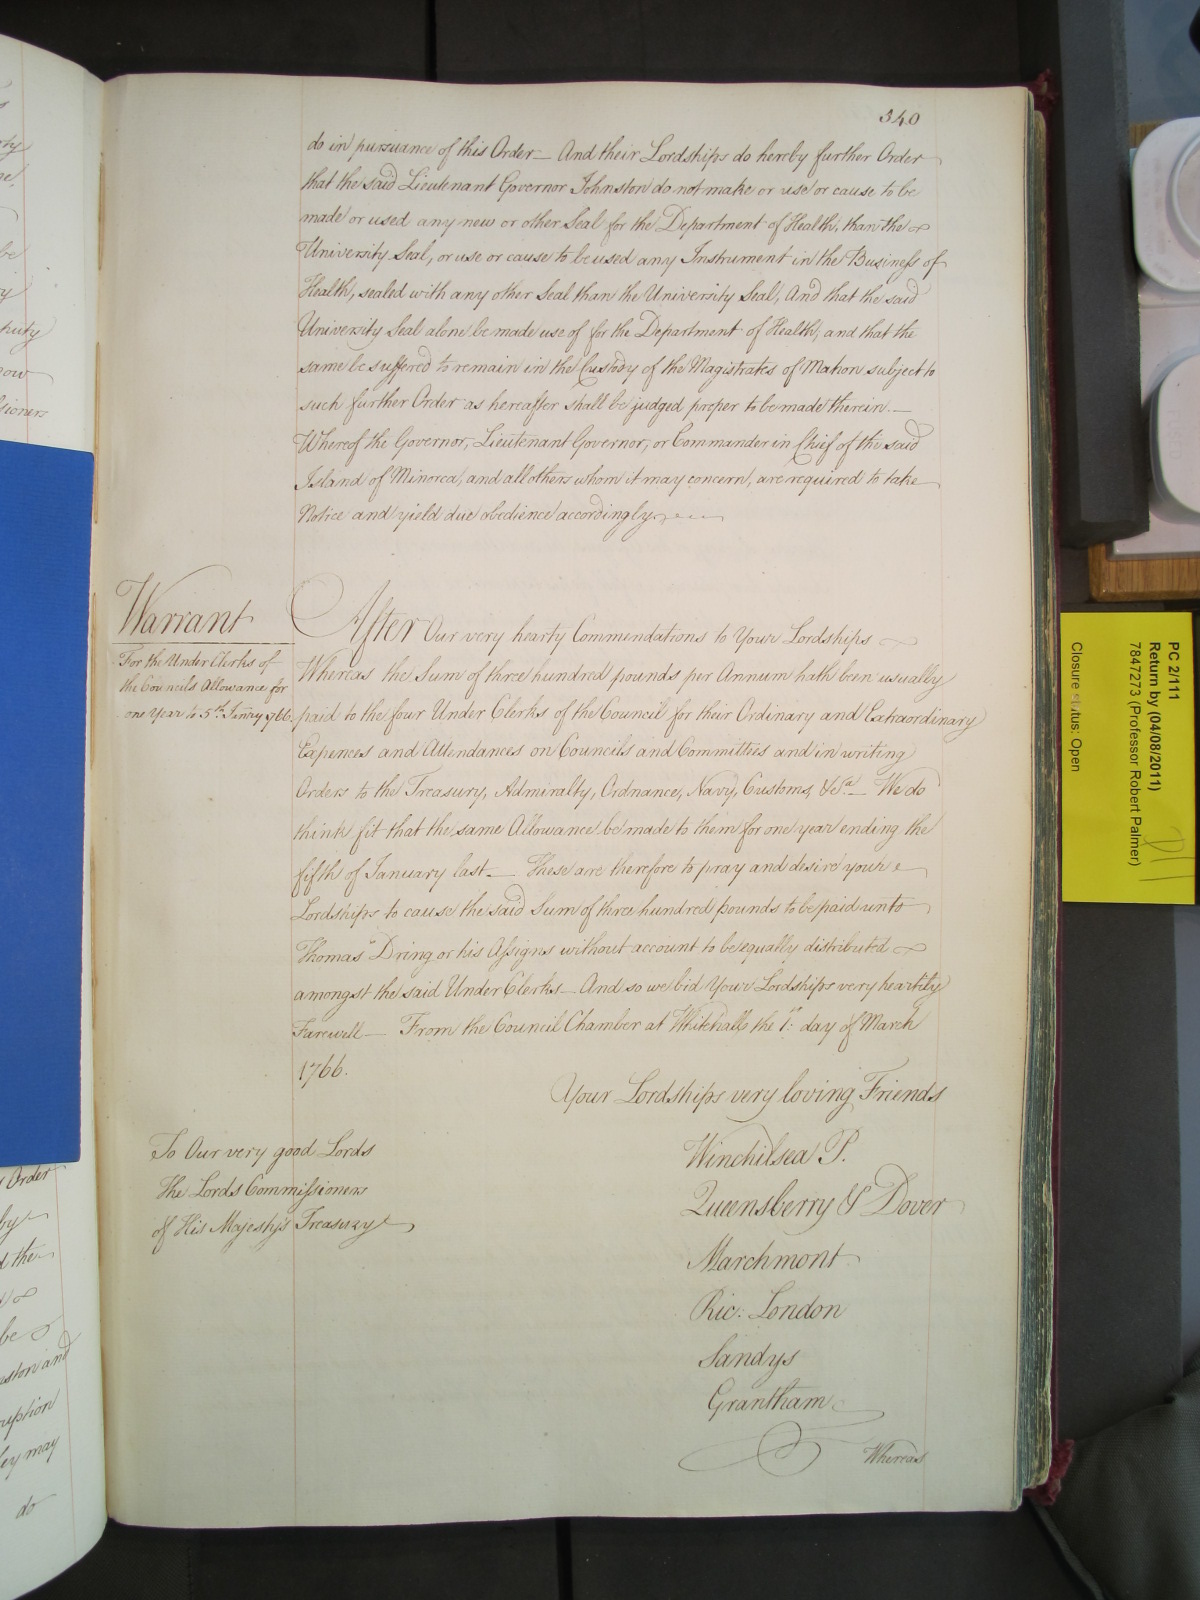 340
do in pursuance of this Order_ And their Lordships do hereby further Order
that the said Lieutenant Governor Johnston do not make or use or cause to be
made or used any new or other Seal for the Department of Health, than the
University Seal, or use or cause to be used any Instrument in the Business of
Health, sealed with any other Seal than the University Seal, And that the said
University Seal alone be made use of for the Department of Health, and that the
same be suffered to remain in the Custody of the Magistrates of Mahon subject to
such further Order as hereafter shall be judged proper to be made therein._
Whereof the Governor, Lieutenant Governor, or Commander in Chief of the said
Island of Minorca, and all others whom it may concern, are required to take
Notice and yield due obedience accordingly
Warrant
For the Under Clerks of
the Councils Allowance for
one Year to 5th Janry 1766.
After Our very hearty Commendations to Your Lordships
Whereas the Sum of three hundred pounds per Annum hath been usually
paid to the four Under Clerks of the Council for their Ordinary and Extraordinary
Expences and Attendances on Councils and Committees and in writing
Orders to the Treasury, Admiralty, Ordnance, Navy, Customs, &ca._ We do
think fit that the same Allowance be made to them for one year ending the
fifth of January last._ These are therefore to pray and desire your
Lordships to cause the said Sum of three hundred pounds to be paid unto
Thomas Dring or his Assigns without account to be equally distributed
amongst the said Under Clerks_ And so we bid Your Lordships very heartily
Farewell_ From the Council Chamber at Whitehall the 1st: day of March
1766.
Your Lordships very loving Friends
To Our very good Lords
The Lords Commissioners
of His Majesty's Treasury
Winchilsea P.
Queensberry & Dover
Marchmont
Ric: London
Sandys
Grantham
Whereas
Order
by
d the
be
uston and
ruption
ley may
do
ow
PC 2/111
Return by (04/08/2011)
7847273 (Professor Robert Palmer)
Closure status: Open